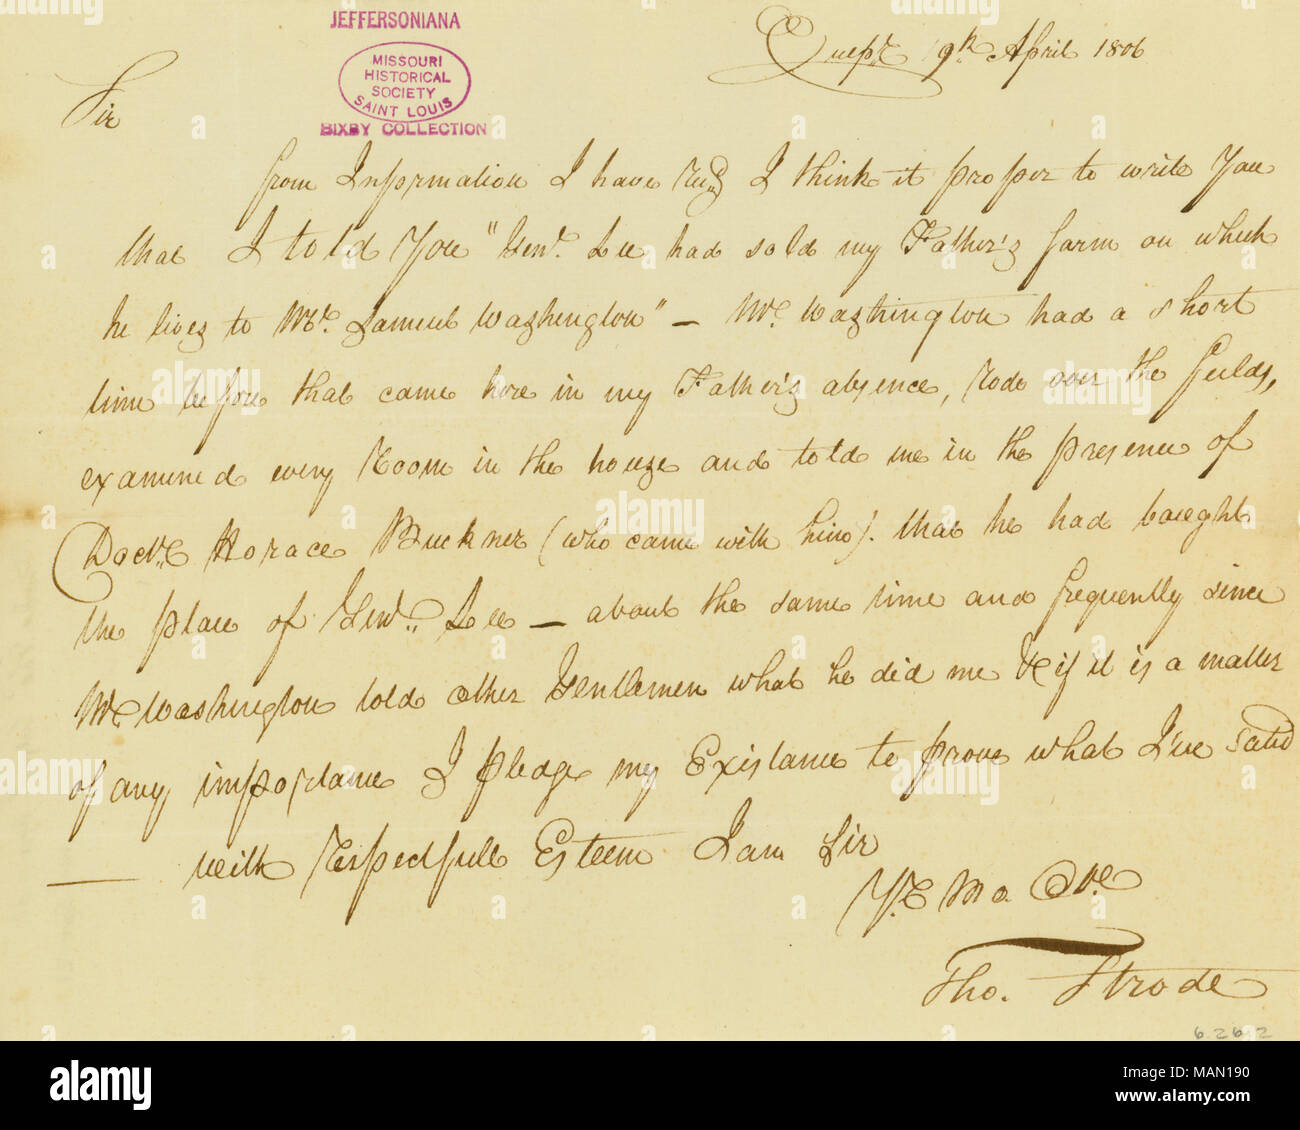 JEFFERSONIANA
MISSOURI
HISTORICAL
SOCIETY
SAINT LOUIS
BIXBY COLLECTION
Culpr. 9th. April 1806
Sir
from Information I have Recd. I think it proper to write You
that I told You "Genl. Lee had sold my Father's farm on which
he lives to Mr. Samuel Washington" — Mr. Washington had a short
time before that came here in my Father's absence, rode over the feilds,
examined every Room in the house and told me in the presence of
Doctr. Horace Buckner (who came with him). that he had bought
the place of Genl. Lee — about the same time and frequently since
Mr. Washington told other Gentlemen what he did me & if it is a matter
of any importance I pledge my Existance to prove what I've said
— with Respectfull Esteem I am Sir
Yr. Mo. Obe.
Tho. Strode
6.26.2
alamy
Image ID: MAN190
www.alamy.com